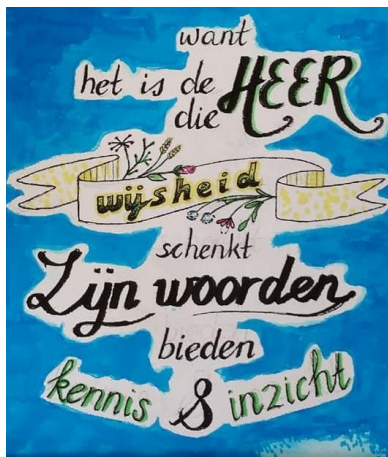 want
het is de HEER
die
wijsheid
schenkt
Zijn woorden
bieden
kennis & inzicht